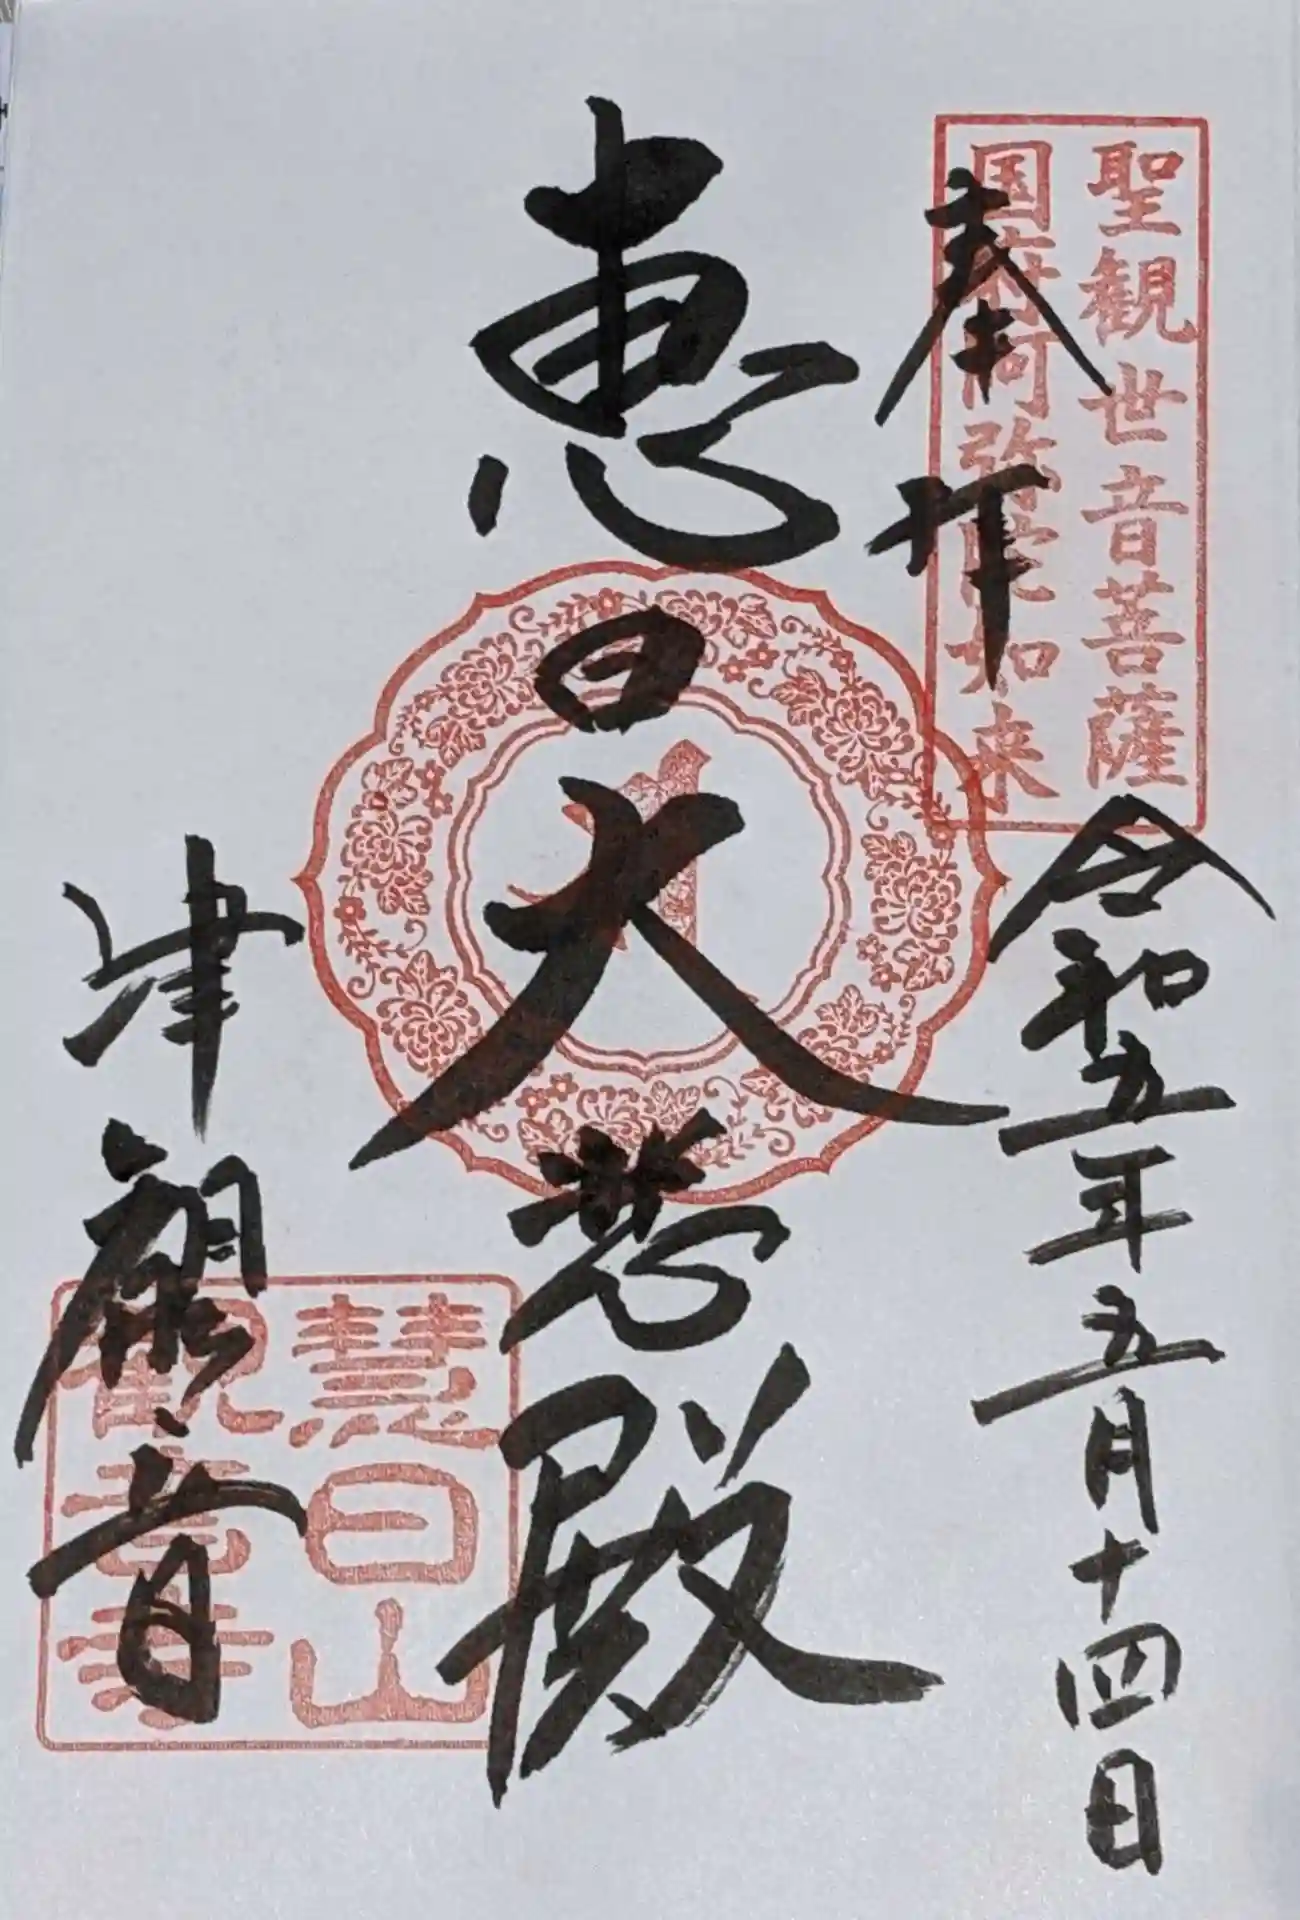 聖観世音菩薩
国府阿弥陀如来
奉拝
令和五年五月十四日
恵日大悲殿
津観音
慧日山
観音寺